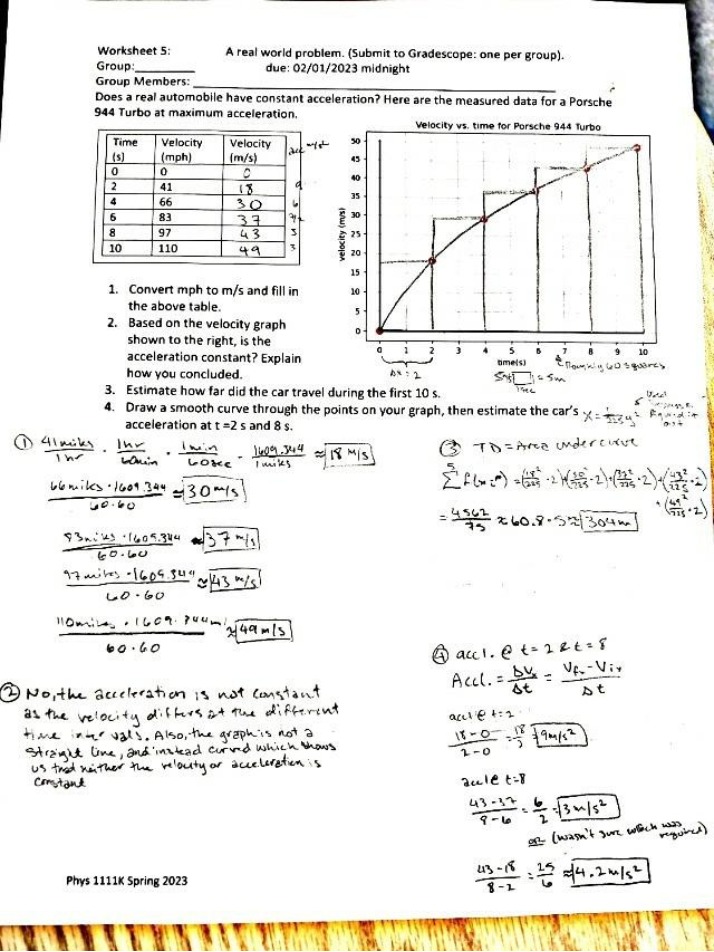 Worksheet 5: A real world problem. (Submit to Gradescope: one per group).
Group: due: 02/01/2023 midnight
Group Members:
Does a real automobile have constant acceleration? Here are the measured data for a Porsche
944 Turbo at maximum acceleration.
Time (s) Velocity (mph) Velocity (m/s) acc m/s²
0 0 0
2 41 18 9
4 66 30 6
6 83 37
8 97 43 3
10 110 49 3
Velocity vs. time for Porsche 944 Turbo
velocity (m/s)
50
45
40
35
30
25
20
15
10
5
0
0 1 2 3 4 5 6 7 8 9 10
time(s)
Δx = 2
Roughly 60 squares
= 5m
1sec
1. Convert mph to m/s and fill in
the above table.
2. Based on the velocity graph
shown to the right, is the
acceleration constant? Explain
how you concluded.
3. Estimate how far did the car travel during the first 10 s.
4. Draw a smooth curve through the points on your graph, then estimate the car's
acceleration at t =2 s and 8 s.
① 41 miles / 1 hr · 1 hr / 60 min · 1 min / 60 sec · 1609.344 / 1 miles ≈ 18 m/s
66 miles · 1609.344 / 60·60 ≈ 30 m/s
83 miles · 1609.344 / 60·60 ≈ 37 m/s
97 miles · 1609.344 / 60·60 ≈ 43 m/s
110 miles · 1609.344 m / 60·60 ≈ 49 m/s
② No, the acceleration is not constant
as the velocity differs at the different
time intervals. Also, the graph is not a
straight line, and instead curved which shows
us that neither the velocity or acceleration is
constant
③ TD = Area under curve
(18²/225 · 2) + (30²/225 · 2) + (37²/225 · 2) + (43²/225 · 2)
+ (49²/225 · 2)
= 4562/75 ≈ 60.8 · 5 ≈ 304m
④ accl. @ t = 2 & t = 8
Accl. = ΔVx / Δt = Vfx - Vix / Δt
accl @ t=2
18 - 0 / 2 - 0 = 18/2 = 9m/s²
accl @ t=8
43 - 37 / 8 - 6 = 6/2 = 3m/s²
or (wasn't sure which was
required)
43 - 18 / 8 - 2 = 25/6 ≈ 4.2m/s²
Phys 1111K Spring 2023